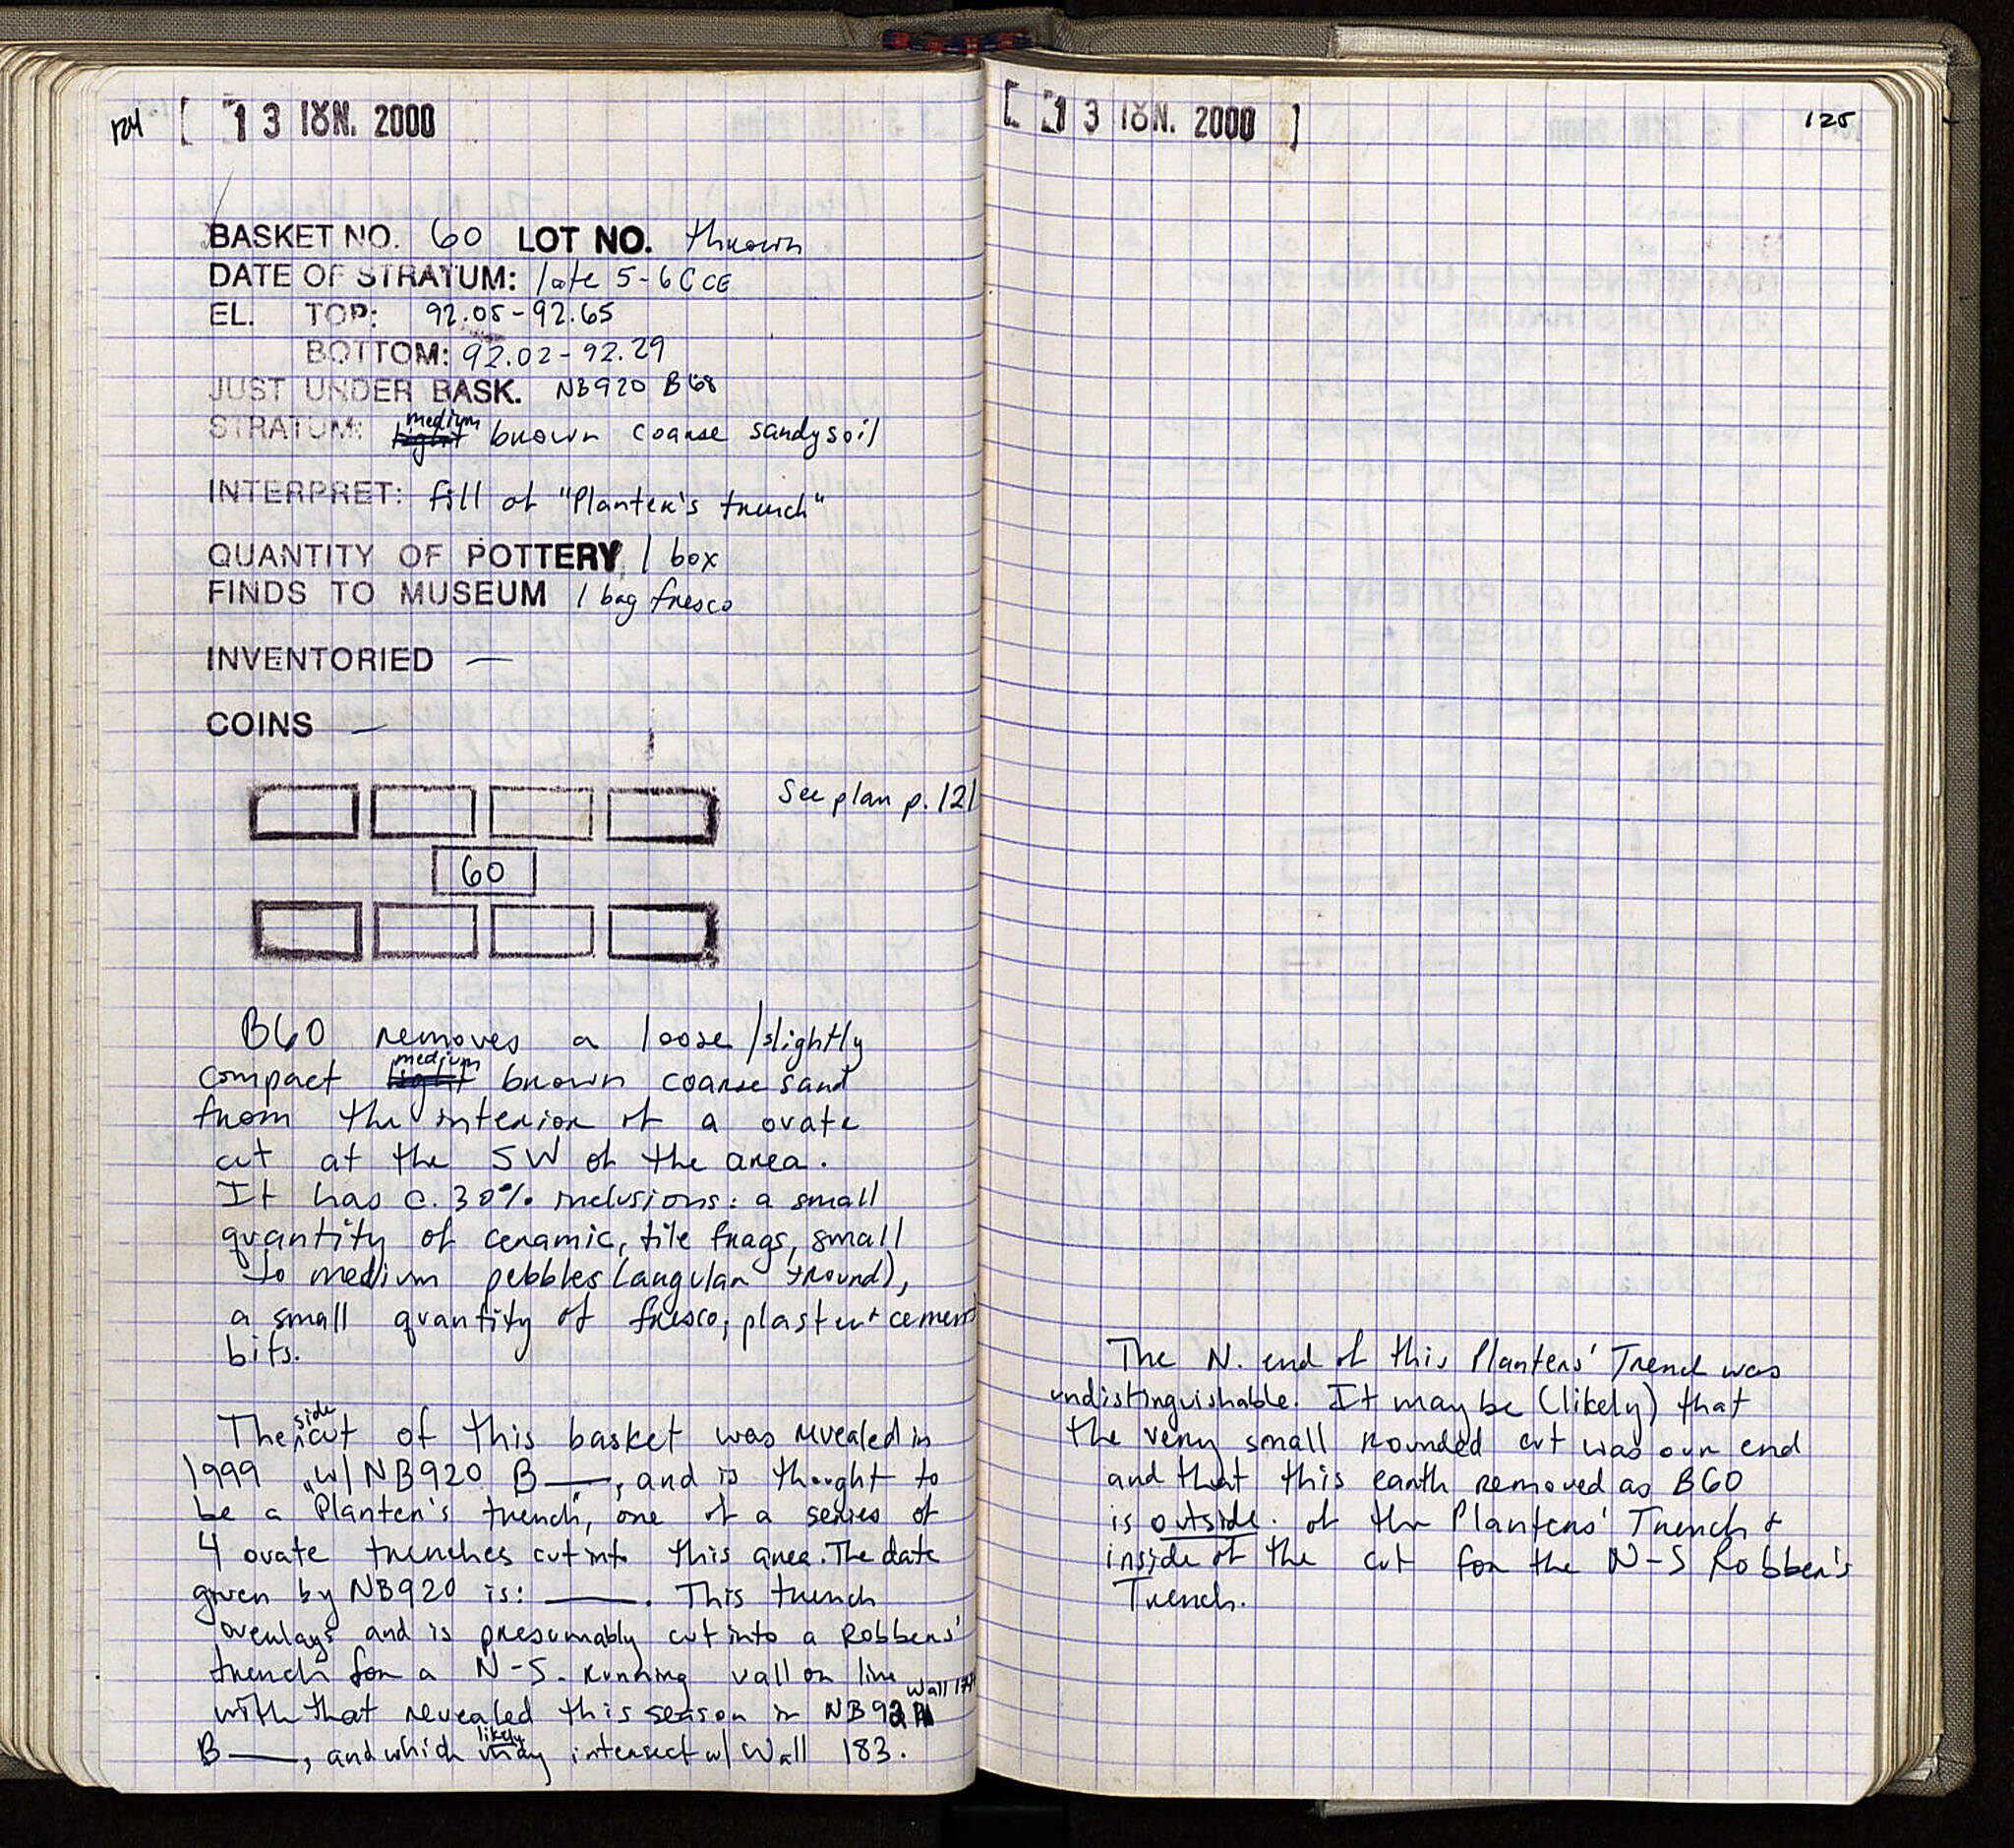 124 [ 13 ΙΟΥΝ. 2000
BASKET NO. 60 LOT NO. thrown
DATE OF STRATUM: late 5-6C CE
EL. TOP: 92.05-92.65
BOTTOM: 92.02-92.29
JUST UNDER BASK. NB920 B68
STRATUM: medium brown coarse sandy soil
INTERPRET: fill of "Planter's trench"
QUANTITY OF POTTERY 1 box
FINDS TO MUSEUM 1 bag fresco
INVENTORIED —
COINS —
See plan p. 121
60
B60 removes a loose/slightly
compact medium brown coarse sand
from the interior of a ovate
cut at the SW of the area.
It has c. 30% inclusions: a small
quantity of ceramic, tile frags, small
to medium pebbles (angular + round),
a small quantity of fresco, plaster + cement
bits.
The side cut of this basket was revealed in
1999 w/ NB920 B___, and is thought to
be a "Planter's trench", one of a series of
4 ovate trenches cut into this area. The date
given by NB920 is: ____. This trench
overlays and is presumably cut into a Robbers'
trench for a N-S. running wall on line
with that revealed this season in NB921 Wall
B___, and which likely may intersect w/ Wall 183.
[ 13 ΙΟΥΝ. 2000 ] 125
The N. end of this Planters' Trench was
undistinguishable. It may be (likely) that
the very small rounded cut was our end
and that this earth removed as B60
is outside. of the Planters' Trench +
inside of the cut for the N-S Robber's
Trench.